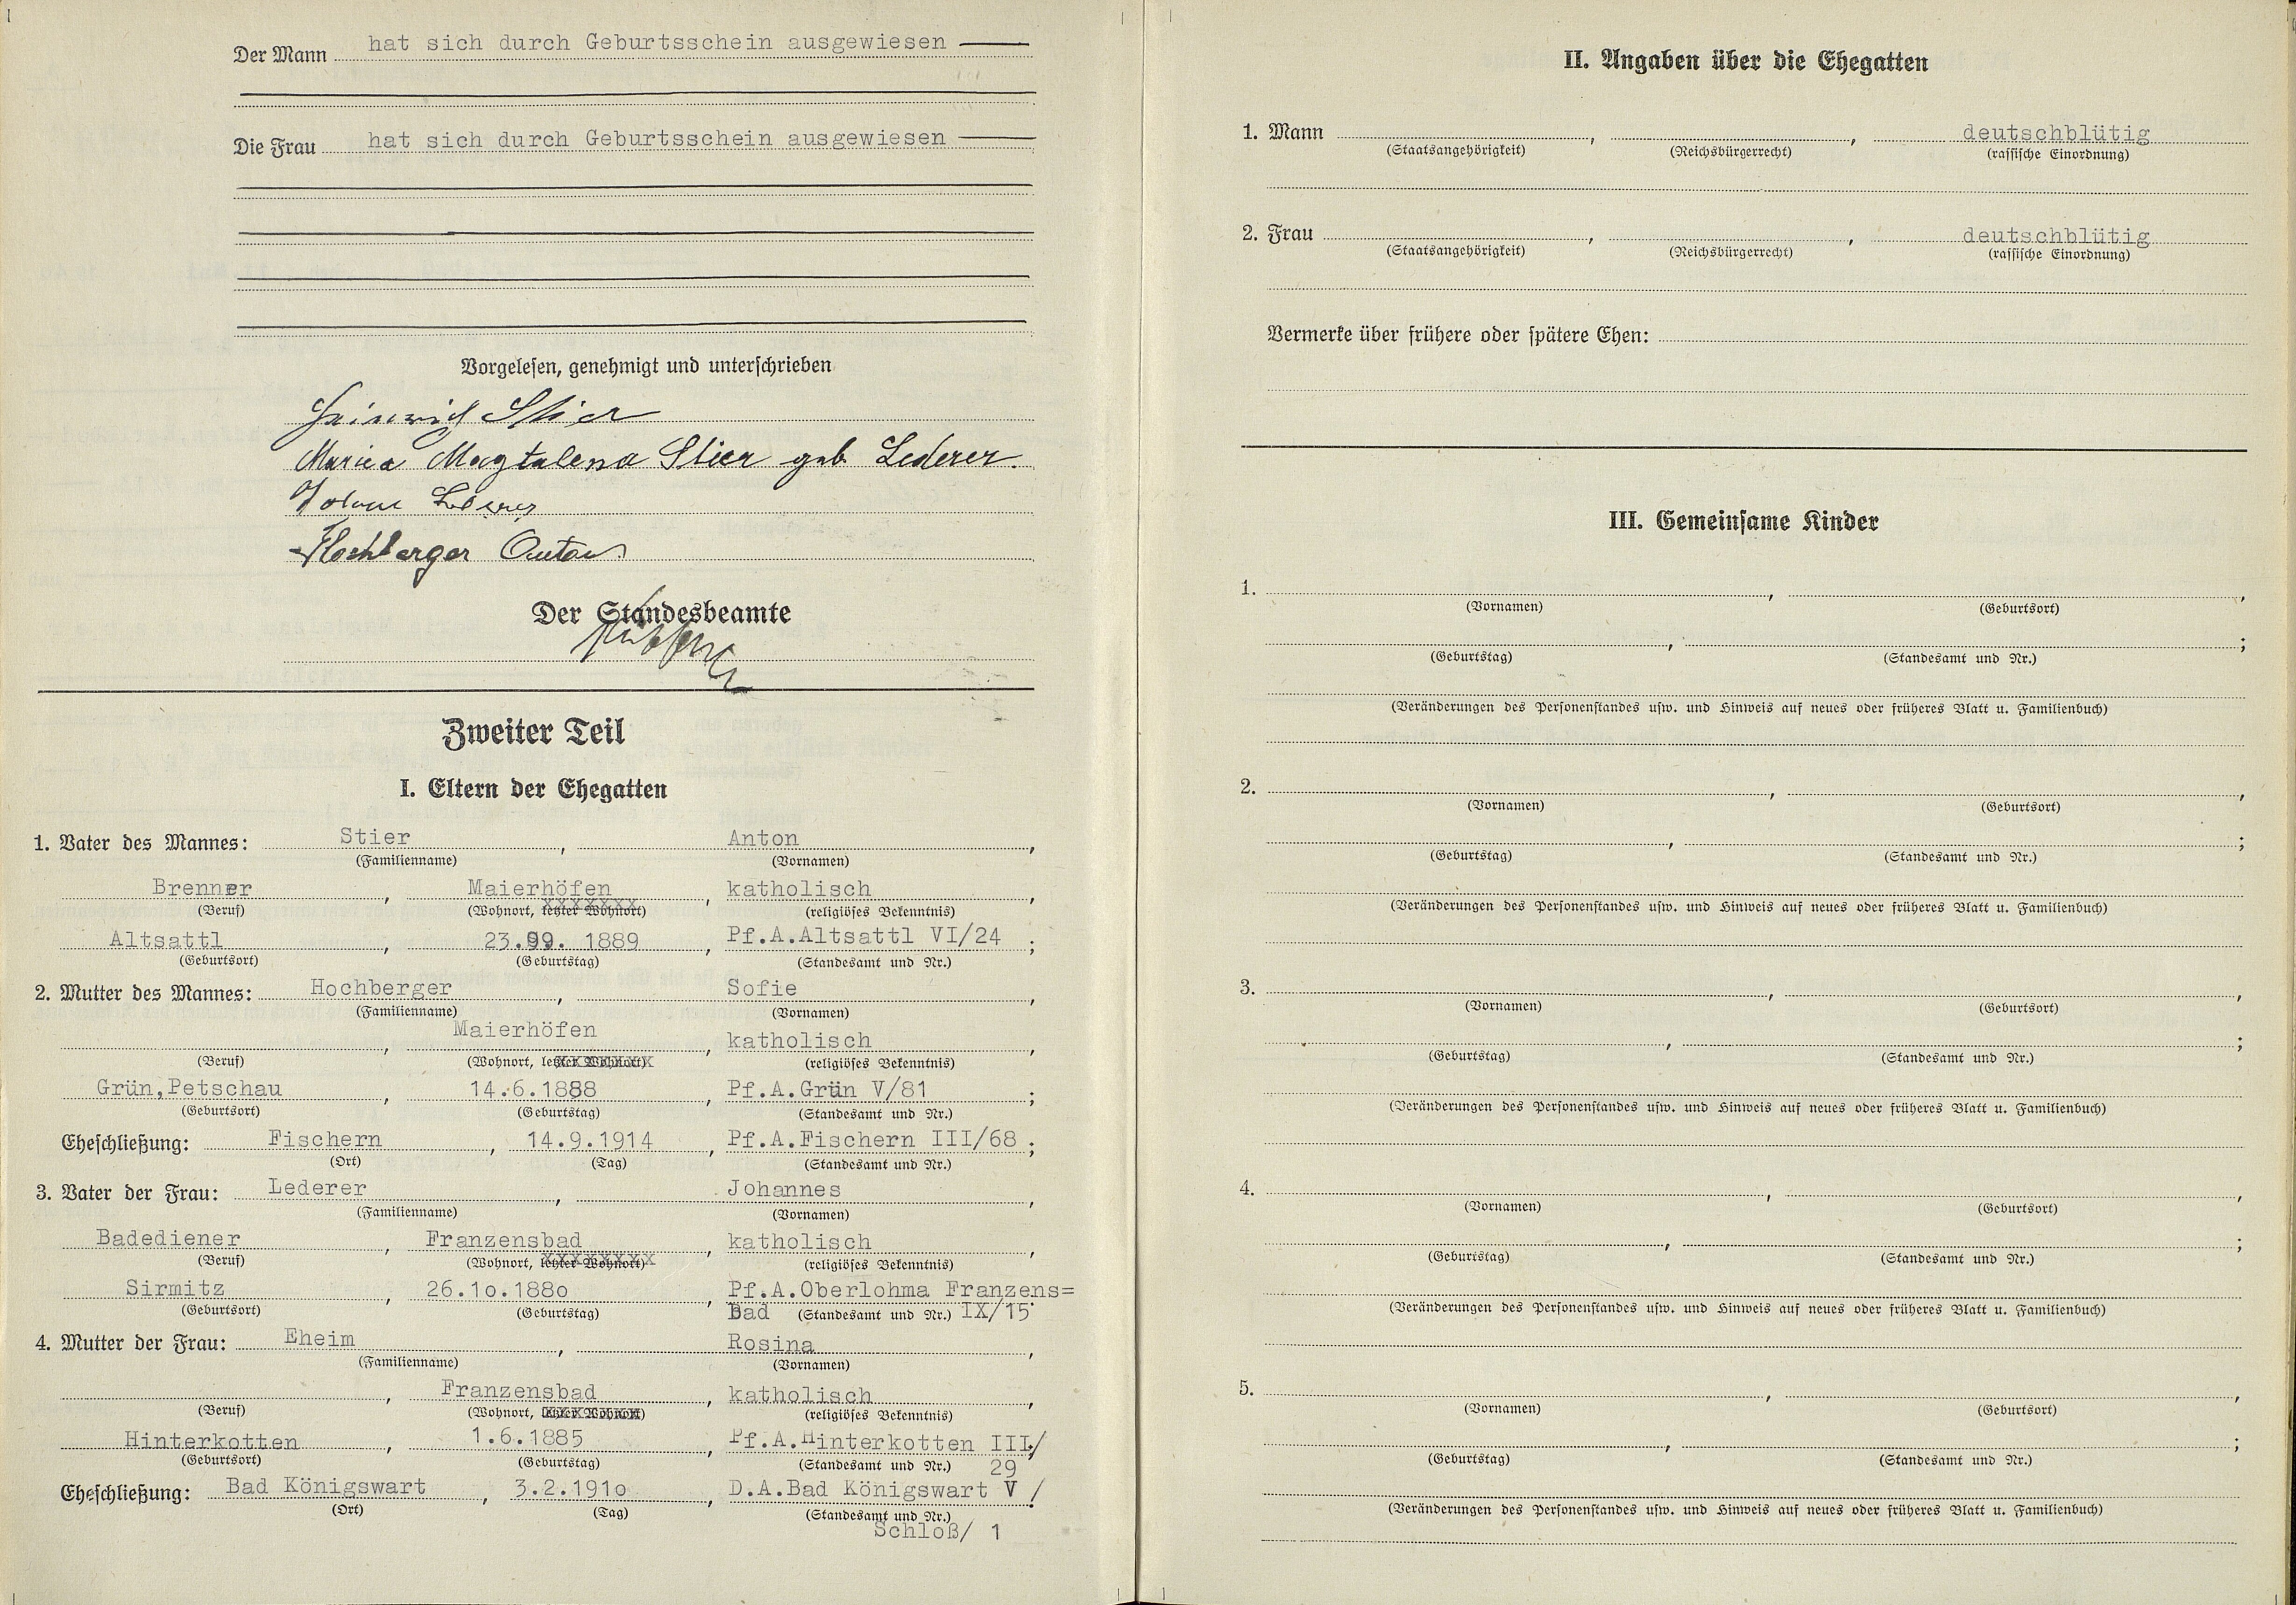 Der Mann hat sich durch Geburtsschein ausgewiesen
Die Frau hat sich durch Geburtsschein ausgewiesen
Vorgelesen, genehmigt und unterschrieben
Heinrich Stier
Maria Magtalena Stier geb Lederer.
Johann Lederer
Hochberger Anton
Der Standesbeamte
Zweiter Teil
I. Eltern der Ehegatten
1. Vater des Mannes: Stier, Anton,
(Familienname) (Vornamen)
Brenner, Maierhöfen, katholisch,
(Beruf) (Wohnort, letzter Wohnort) (religiöses Bekenntnis)
Altsattl, 23.9. 1889, Pf.A.Altsattl VI/24;
(Geburtsort) (Geburtstag) (Standesamt und Nr.)
2. Mutter des Mannes: Hochberger, Sofie,
(Familienname) (Vornamen)
, Maierhöfen, katholisch,
(Beruf) (Wohnort, letzter Wohnort) (religiöses Bekenntnis)
Grün,Petschau, 14.6.1888, Pf.A.Grün V/81;
(Geburtsort) (Geburtstag) (Standesamt und Nr.)
Eheschließung: Fischern, 14.9.1914, Pf.A.Fischern III/68;
(Ort) (Tag) (Standesamt und Nr.)
3. Vater der Frau: Lederer, Johannes,
(Familienname) (Vornamen)
Badediener, Franzensbad, katholisch,
(Beruf) (Wohnort, letzter Wohnort) (religiöses Bekenntnis)
Sirmitz, 26.1o.188o, Pf.A.Oberlohma Franzens=
(Geburtsort) (Geburtstag) Bad (Standesamt und Nr.) IX/15
4. Mutter der Frau: Eheim, Rosina,
(Familienname) (Vornamen)
, Franzensbad, katholisch,
(Beruf) (Wohnort, letzter Wohnort) (religiöses Bekenntnis)
Hinterkotten, 1.6.1885, Pf.A.Hinterkotten III/
(Geburtsort) (Geburtstag) (Standesamt und Nr.) 29
Eheschließung: Bad Königswart, 3.2.191o, D.A.Bad Königswart V /
(Ort) (Tag) (Standesamt und Nr.)
Schloß/ 1
II. Angaben über die Ehegatten
1. Mann , , deutschblütig
(Staatsangehörigkeit) (Reichsbürgerrecht) (rassische Einordnung)
2. Frau , , deutschblütig
(Staatsangehörigkeit) (Reichsbürgerrecht) (rassische Einordnung)
Vermerke über frühere oder spätere Ehen:
III. Gemeinsame Kinder
1. , ,
(Vornamen) (Geburtsort)
, ;
(Geburtstag) (Standesamt und Nr.)
(Veränderungen des Personenstandes usw. und Hinweis auf neues oder früheres Blatt u. Familienbuch)
2. , ,
(Vornamen) (Geburtsort)
, ;
(Geburtstag) (Standesamt und Nr.)
(Veränderungen des Personenstandes usw. und Hinweis auf neues oder früheres Blatt u. Familienbuch)
3. , ,
(Vornamen) (Geburtsort)
, ;
(Geburtstag) (Standesamt und Nr.)
(Veränderungen des Personenstandes usw. und Hinweis auf neues oder früheres Blatt u. Familienbuch)
4. , ,
(Vornamen) (Geburtsort)
, ;
(Geburtstag) (Standesamt und Nr.)
(Veränderungen des Personenstandes usw. und Hinweis auf neues oder früheres Blatt u. Familienbuch)
5. , ,
(Vornamen) (Geburtsort)
, ;
(Geburtstag) (Standesamt und Nr.)
(Veränderungen des Personenstandes usw. und Hinweis auf neues oder früheres Blatt u. Familienbuch)